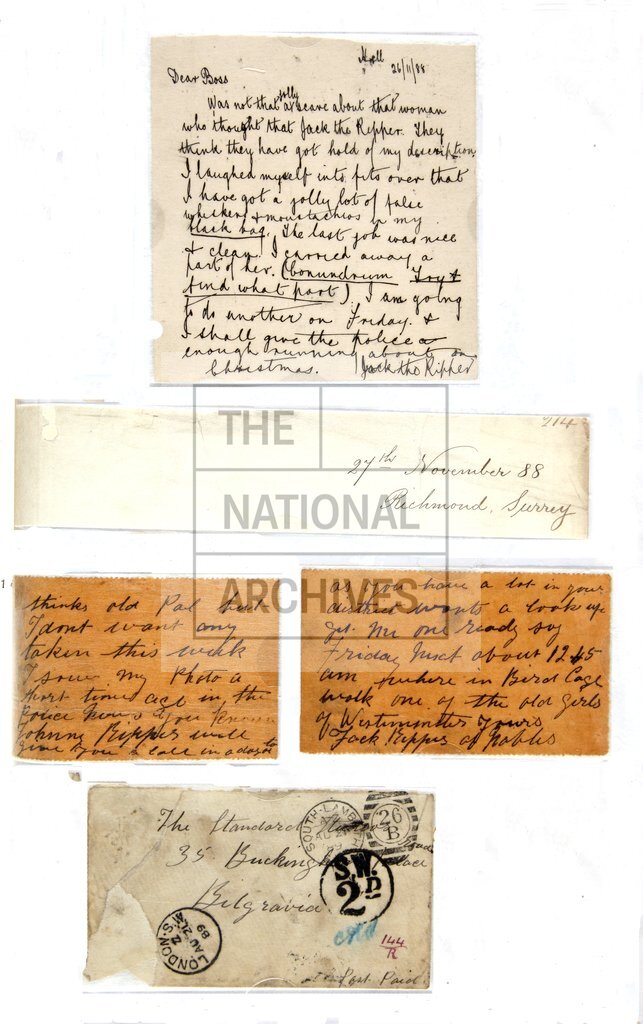 Hell
26/11/88
Dear Boss
Was not that a jolly scare about that woman
who thought that Jack the Ripper. They
think they have got hold of my description
I laughed myself into fits over that
I have got a jolly lot of false
whiskers & moustachios in my
black bag. The last job was nice
& clean. I carried away a
part of her. (Conundrum Try &
find what part). I am going
to do another on Friday. &
I shall give the police a
enough running about on
Christmas. Jack the Ripper
THE
NATIONAL
ARCHIVES
214
27th November 88
Richmond, Surrey
1
thinks old Pal but
I dont want any
taken this week
I saw my Photo a
short time ago in the
Police News if you
Johnny Ripper will
give you a call in a day or to
as you have a lot in your
district wants a look up
get me one ready say
Friday next about 12 45
am where in Bird Cage
walk one of the old girls
of Westminster yours
Jack Ripper
The Standard
35 Buckingh
Belgravia
SOUTH-LAMBETH
AU 2
89
26
B
S.W.
2D
LONDON S.W.
Z
AU 21
89
144
R
Post Paid